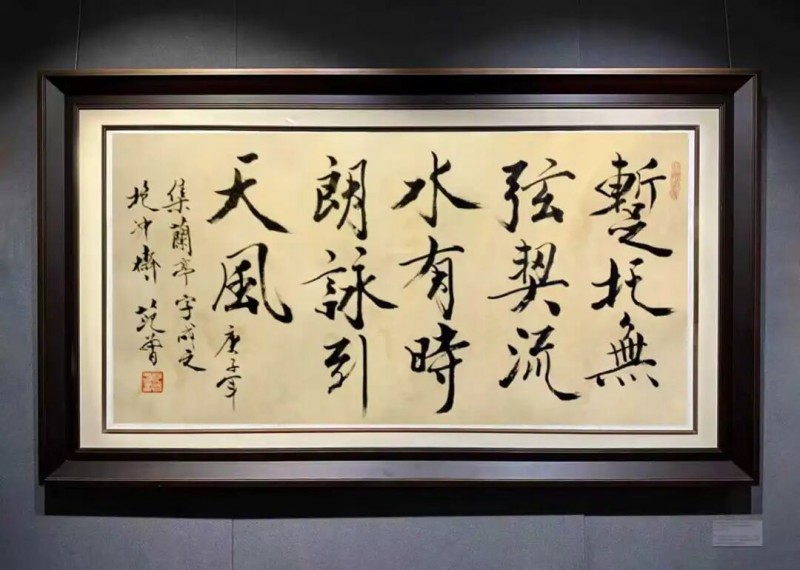 蹔托無
弦契流
水有時
朗詠引
天風
庚子年
集蘭亭字成之
抱冲齋 范曾